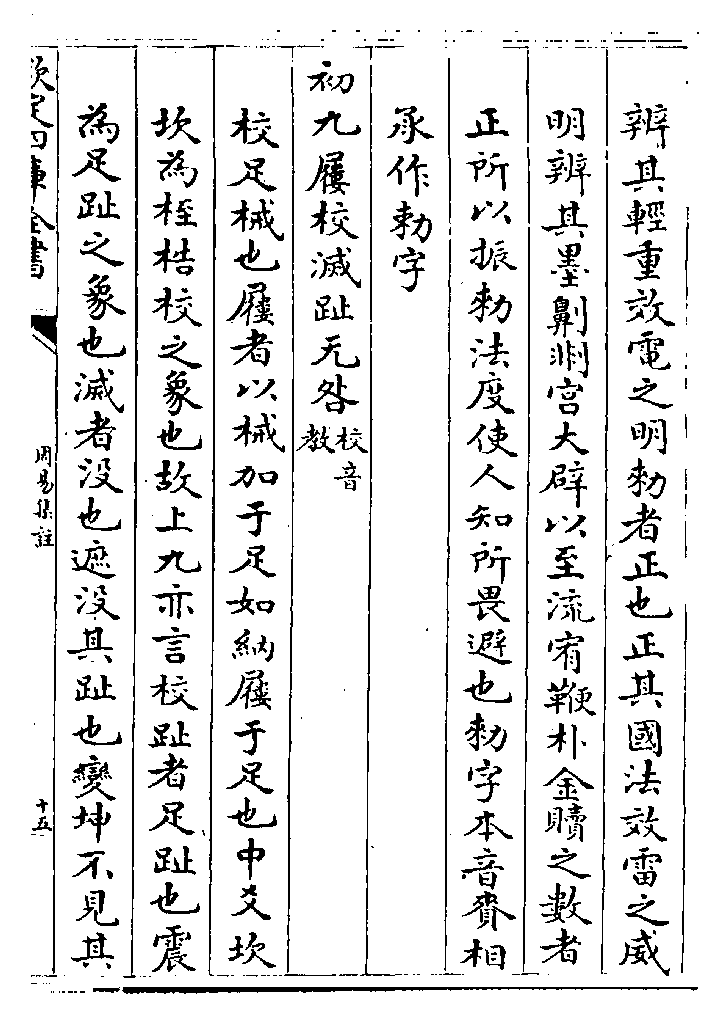 辨其輕重效電之明勑者正也正其國法效雷之威
明辨其墨劓剕宮大辟以至流宥鞭朴金贖之數者
正所以振勑法度使人知所畏避也勑字本音賚相
承作勅字
初九屨校滅趾无咎校音教
校足械也屨者以械加于足如納屨于足也中爻坎
坎為桎梏校之象也故上九亦言校趾者足趾也震
為足趾之象也滅者没也遮没其趾也變坤不見其
欽定四庫全書
周易集註
十五